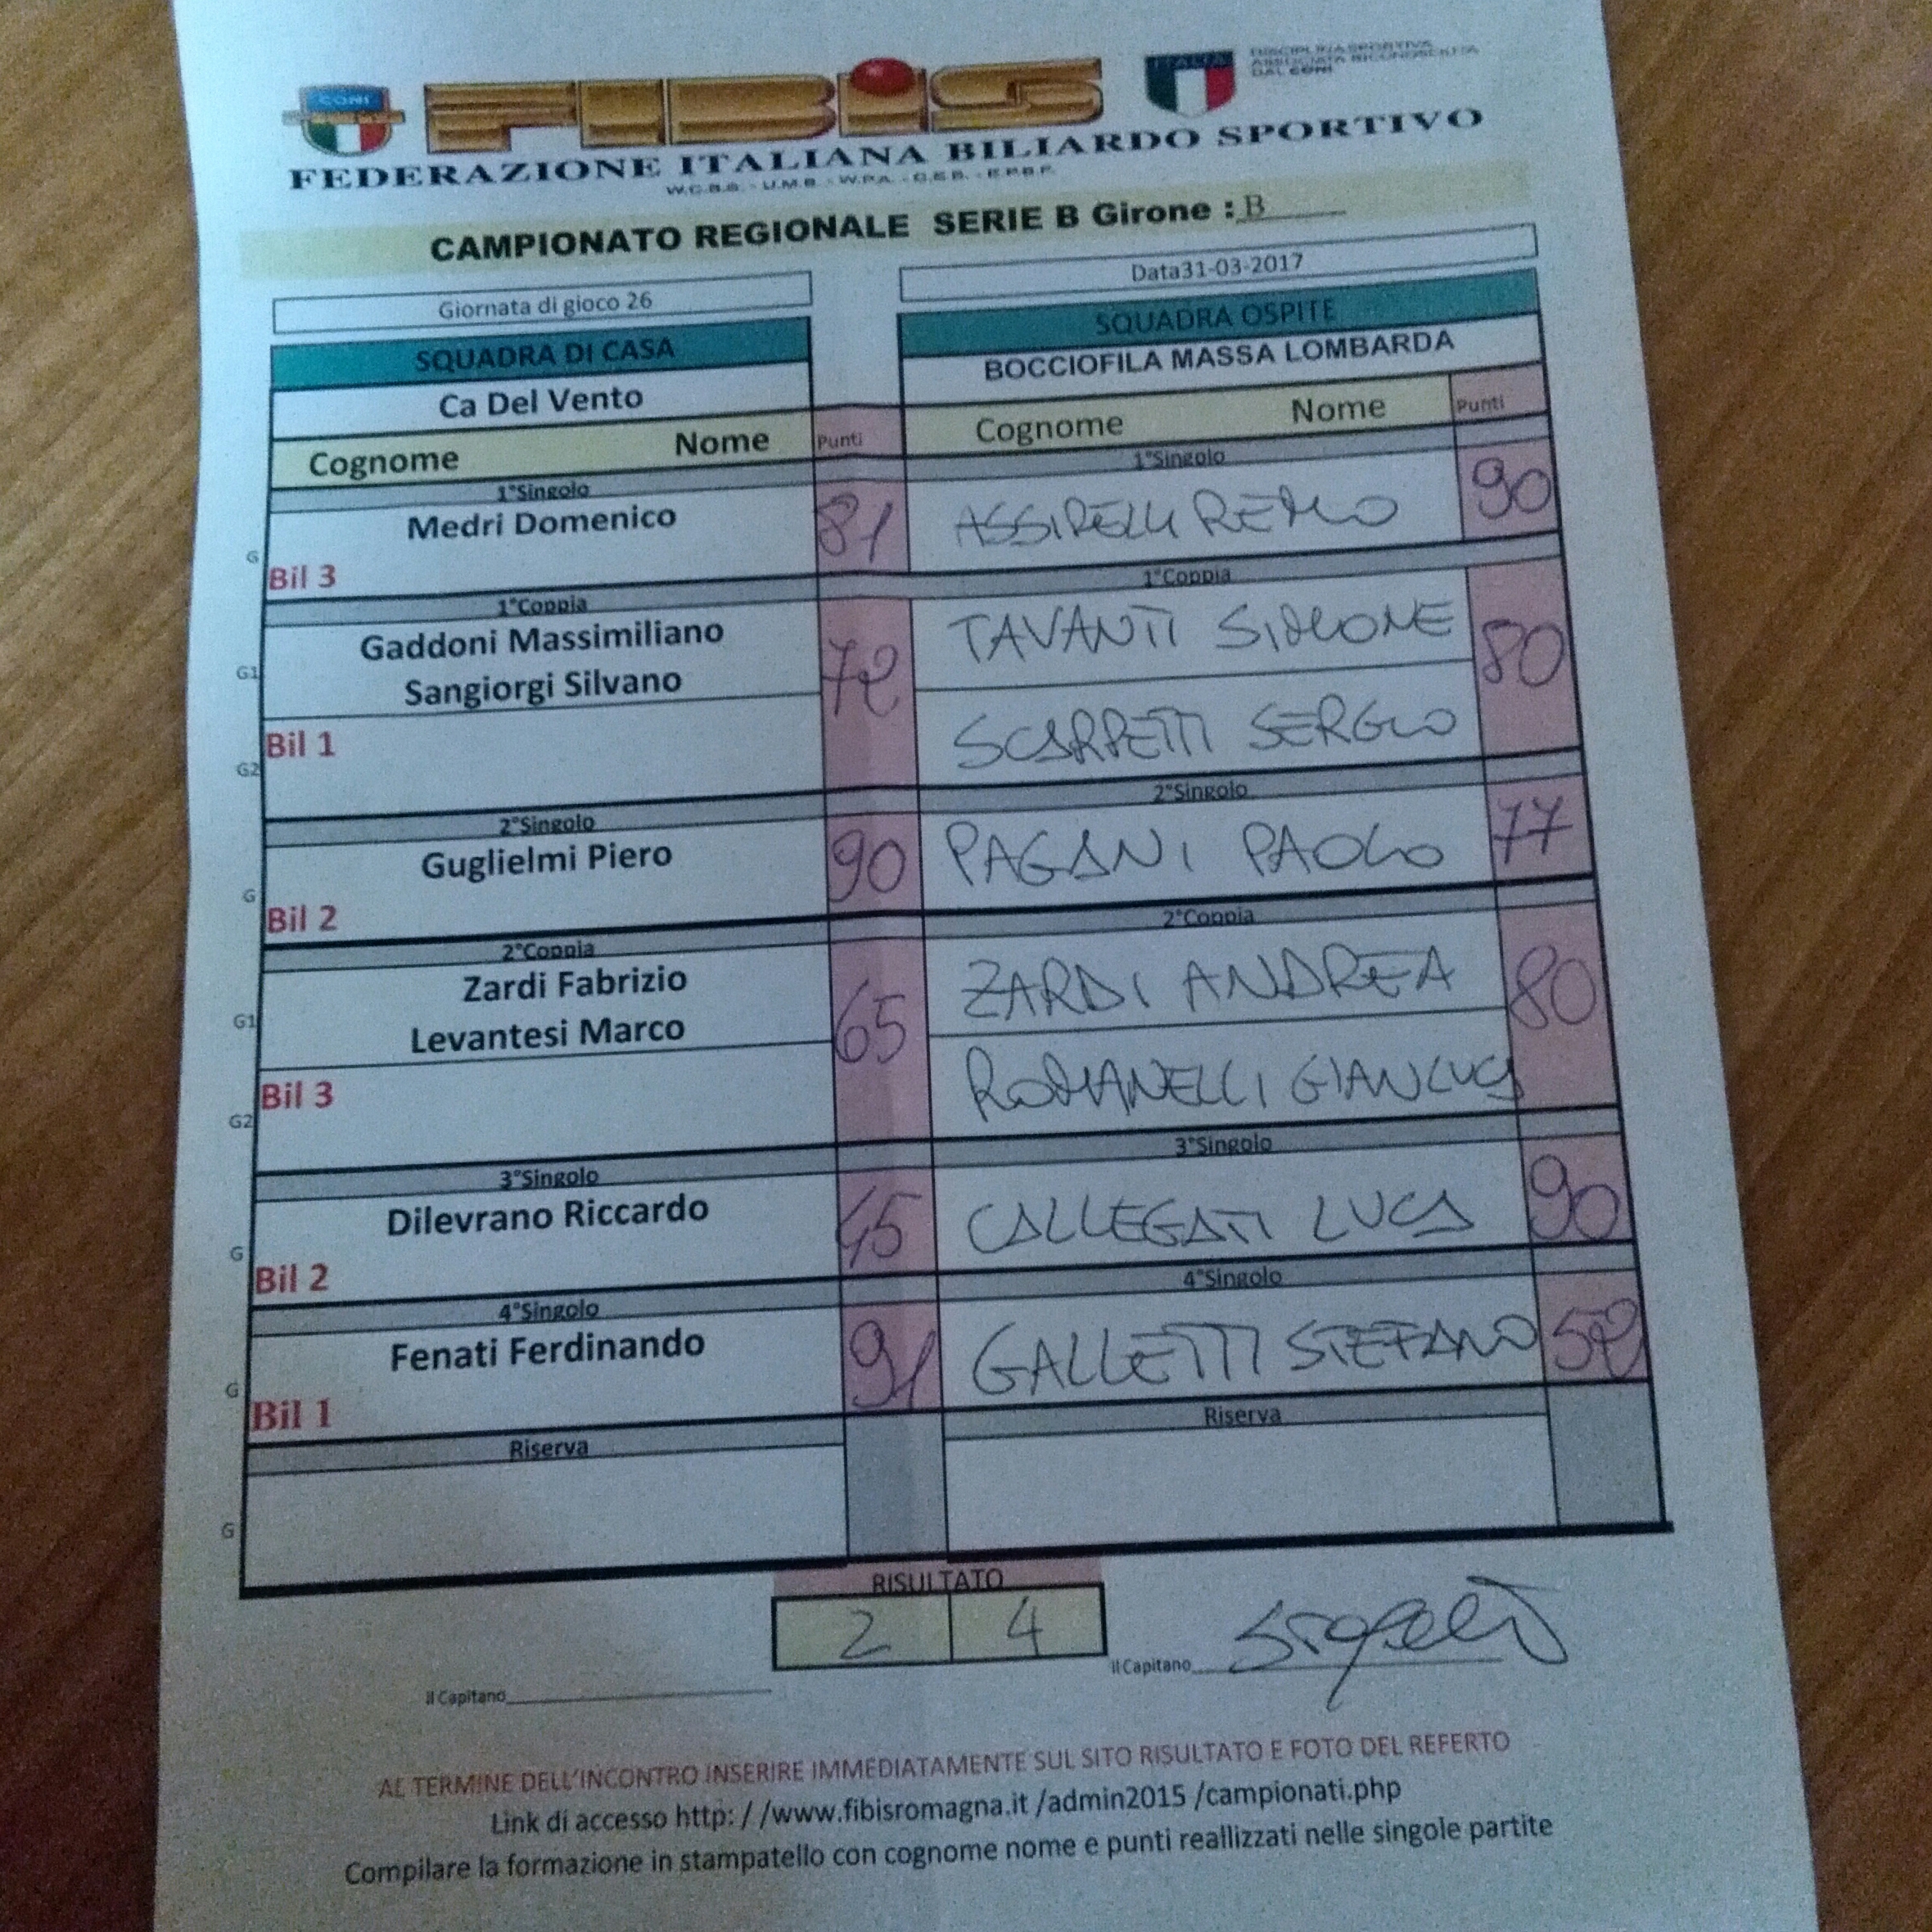 CONI
FIBIS
ITALIA
DISCIPLINA SPORTIVA
ASSOCIATA RICONOSCIUTA
DAL CONI
FEDERAZIONE ITALIANA BILIARDO SPORTIVO
W.C.B.S. - U.M.B. - W.P.A. - C.E.B. - E.P.B.F.
CAMPIONATO REGIONALE SERIE B Girone : B
Giornata di gioco 26 Data31-03-2017
SQUADRA DI CASA SQUADRA OSPITE
Ca Del Vento BOCCIOFILA MASSA LOMBARDA
Cognome Nome Punti Cognome Nome Punti
1°Singolo 1°Singolo
Medri Domenico 81 ASSIRELLI REMO 90
G Bil 3
1°Coppia 1°Coppia
Gaddoni Massimiliano 72 TAVANTI SIMONE 80
G1 Sangiorgi Silvano
Bil 1 SCARPETTI SERGIO
G2
2°Singolo 2°Singolo
Guglielmi Piero 90 PAGANI PAOLO 77
G Bil 2
2°Coppia 2°Coppia
Zardi Fabrizio 65 ZARDI ANDREA 80
G1 Levantesi Marco
Bil 3 ROMANELLI GIANLUCA
G2
3°Singolo 3°Singolo
Dilevrano Riccardo 45 CALLEGATI LUCA 90
G Bil 2
4°Singolo 4°Singolo
Fenati Ferdinando 91 GALLETTI STEFANO 52
G Bil 1
Riserva Riserva
G
RISULTATO
2 4
il Capitano il Capitano
AL TERMINE DELL'INCONTRO INSERIRE IMMEDIATAMENTE SUL SITO RISULTATO E FOTO DEL REFERTO
Link di accesso http: / /www.fibisromagna.it /admin2015 /campionati.php
Compilare la formazione in stampatello con cognome nome e punti reallizzati nelle singole partite